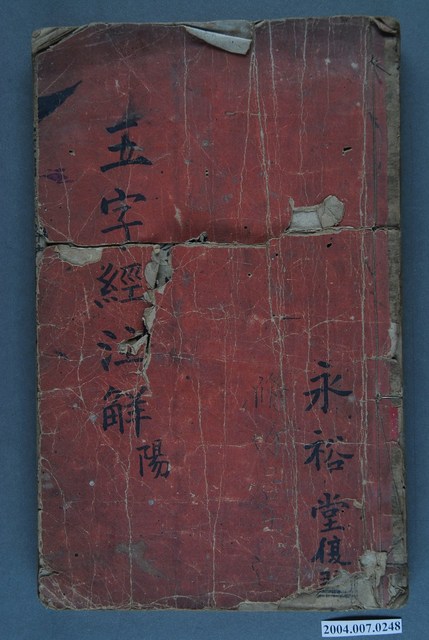 永裕堂復
五字經注解
陽
2004.007.0248